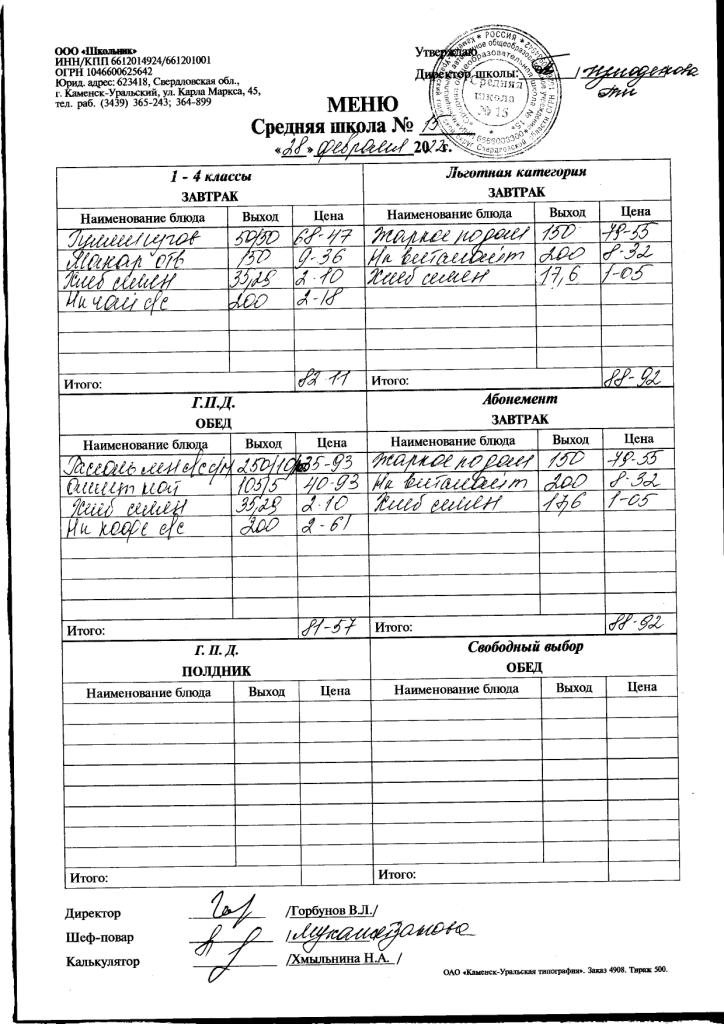 ООО «Школьник»
ИНН/КПП 6612014924/661201001
ОГРН 1046600625642
Юрид. адрес: 623418, Свердловская обл.,
г. Каменск-Уральский, ул. Карла Маркса, 45,
тел. раб. (3439) 365-243; 364-899
Утверждаю
Директор школы:
Средняя школа № 15
МЕНЮ
Средняя школа № 15
«28» февраля 20 г.
1 - 4 классы
ЗАВТРАК
Наименование блюда Выход Цена
50/50 68-47
Макар отв 150 9-36
Хлеб семен 35,29 2-10
Нп чай с/с 200 2-18
Итого: 82-11
Льготная категория
ЗАВТРАК
Наименование блюда Выход Цена
Жаркое по дом 150 79-55
Нп витамант 200 8-32
Хлеб семен 17,6 1-05
Итого: 88-92
Г.П.Д.
ОБЕД
Наименование блюда Выход Цена
Рассоль лен 250/10 35-93
Омлет нат 105/5 40-93
Хлеб семен 35,29 2-10
Нп кофе с/с 200 2-61
Итого: 81-57
Абонемент
ЗАВТРАК
Наименование блюда Выход Цена
Жаркое по дом 150 79-55
Нп витамант 200 8-32
Хлеб семен 17,6 1-05
Итого: 88-92
Г. П. Д.
ПОЛДНИК
Наименование блюда Выход Цена
Итого:
Свободный выбор
ОБЕД
Наименование блюда Выход Цена
Итого:
Директор /Горбунов В.Л./
Шеф-повар /
Калькулятор /Хмыльнина Н.А. /
ОАО «Каменск-Уральская типография». Заказ 4908. Тираж 500.